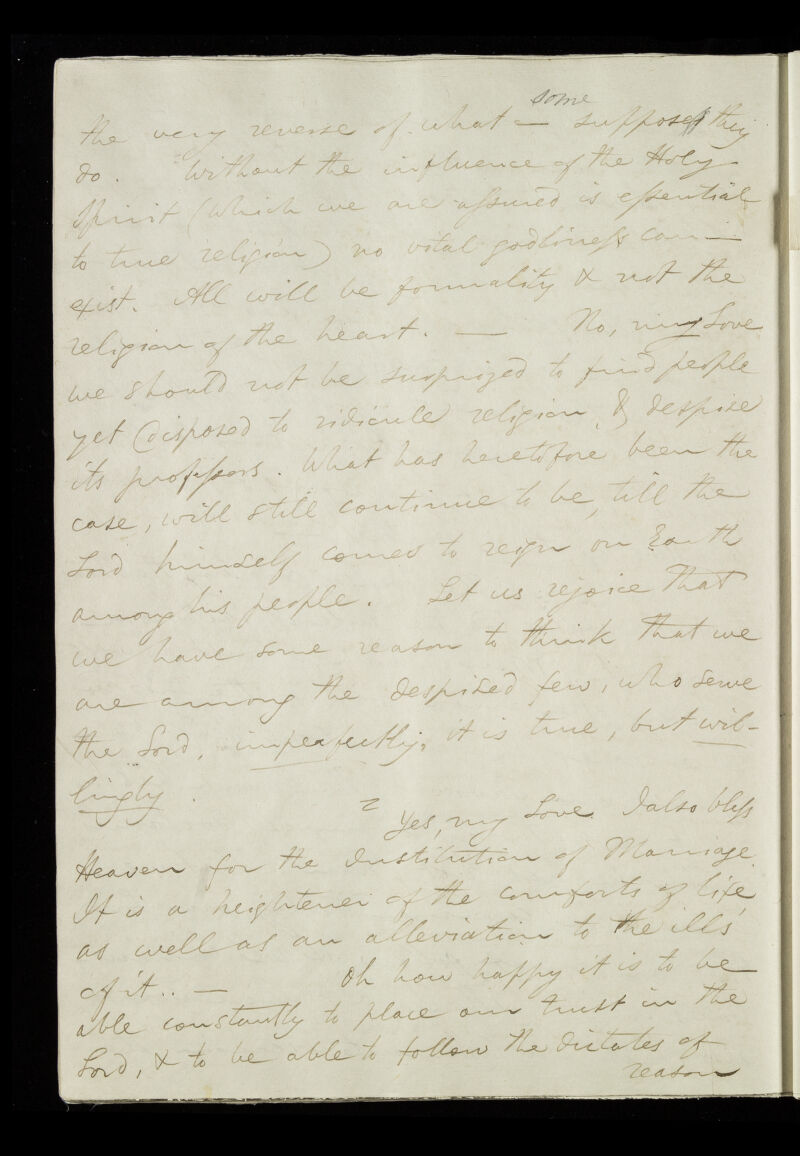 some
the very reverse of what — supposes they
do. Without the influence of the Holy
Spirit (which we are assured is essential
to true religion) no vital godliness can —
exist. All will be formality & not the
religion of the heart. — No, my Love
we should not be surprized to find people
yet disposed to ridicule religion, & despise
its professors. What has heretofore been the
case, will still continue to be, till the
Lord himself comes to reign on Earth
among his people. Let us rejoice that
we have some reason to think that we
are among the despised few, who serve
the Lord, imperfectly, it is true, but wil-
lingly.
Yes, my Love I also bless
Heaven for the Institution of Marriage.
It is a heightener of the comforts of life,
as well as an alleviation to the ills
of it.. — Oh how happy it is to be
able constantly to place our trust in the
Lord, & to be able to follow the dictates of
reason